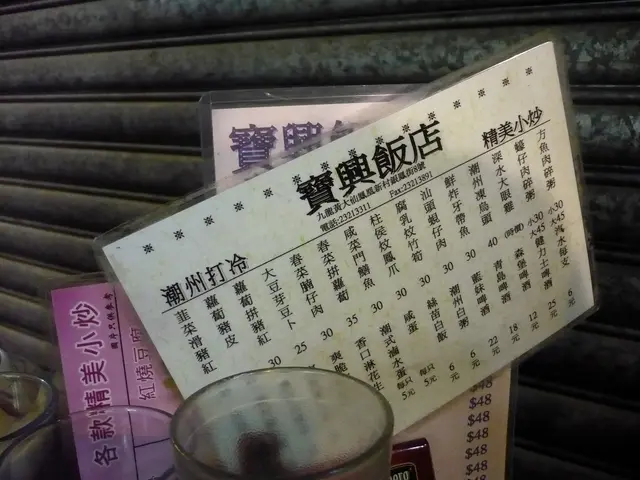 寶興飯店
九龍黃大仙鳳凰新村銀鳳街8號
電話:23213311 Fax:23213891
潮州打冷
精美小炒
韮菜滑豬紅
蘿蔔豬皮
蘿蔔拼豬紅
大豆芽豆卜
春菜腩仔肉
春菜拼蘿蔔
咸菜門鱔魚
柱侯炆鳳爪
腐乳炆竹筍
汕頭蜆仔肉
鮮炸牙帶魚
潮州凍烏頭
深水大眼雞
蠔仔肉碎粥
方魚肉碎粥
30
25
30
35
30
30
30
30
40
(時價)
小30
大45
小30
大45
香口淋花生
潮式滷水蛋
每只
5元
咸蛋
每只
5元
絲苗白飯
6元
潮州白粥
6元
藍妹啤酒
22元
青島啤酒
18元
森堡啤酒
12元
健力士啤酒
25元
汽水每支
6元
各款精美小炒
紅燒豆腐
$48
$48
$48
$48
$48
$48